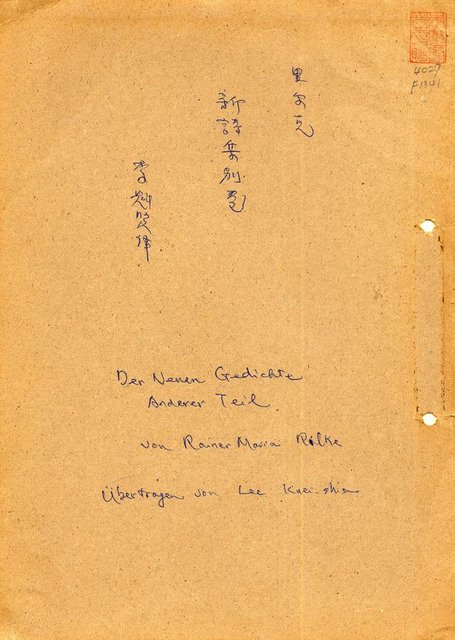 里尔克
新詩集別卷
李魁賢譯
F1341
Der Neuen Gedichte
Anderer Teil.
von Rainer Maria Rilke
Übertragen von Lee Kuei-shien